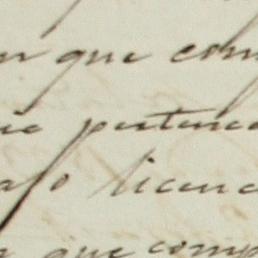 que com
pertence
licenc
que comp